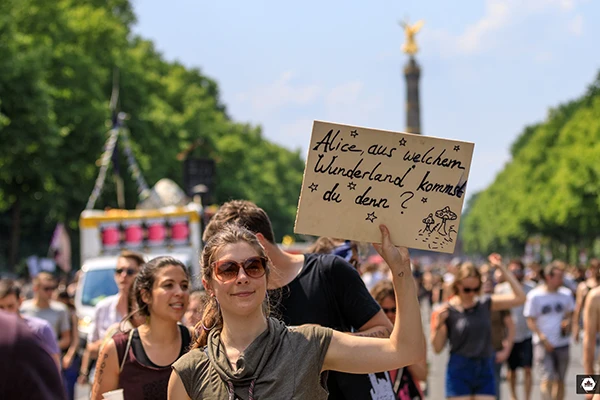 Alice, aus welchem
Wunderland kommst
du denn?